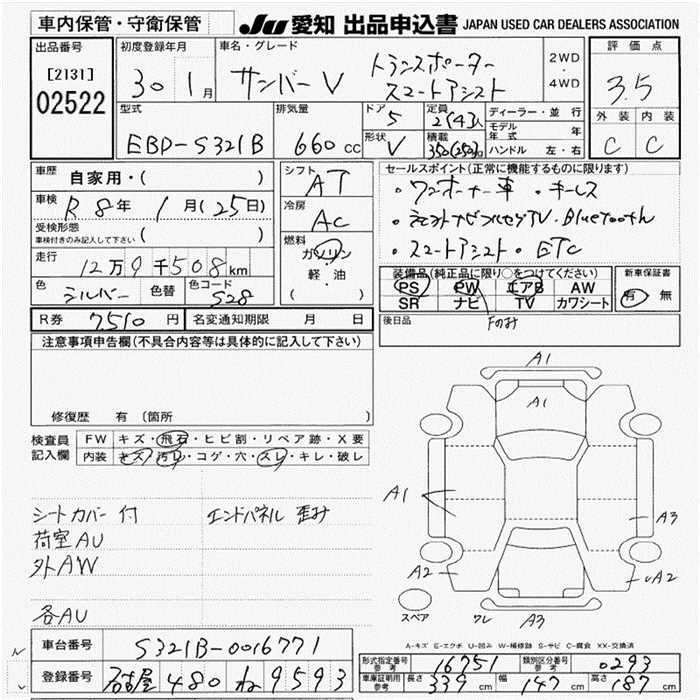 車内保管・守衛保管
JU 愛知 出品申込書 JAPAN USED CAR DEALERS ASSOCIATION
出品番号
[2131]
02522
初度登録年月
30 1月
車名・グレード
サンバーV トランスポーター
スマートアシスト
2WD
・
4WD
評価点
3.5
外装 内装
C C
型式
EBD-S321B
排気量
660 cc
ドア
5
形状
V
定員
2(4)人
積載
350(250)kg
ディーラー・並行
モデル年式 年
ハンドル 左・右
車歴
自家用・( )
車検
R8年 1月(25日)
受検形態
車検付きのみ記入して下さい ( )
走行
12万9千508km
色
シルバー
色替
色コード
S28
シフト
AT
冷房
AC
燃料
ガソリン
・
軽・油
( )
セールスポイント(正常に機能するものに限ります)
・ワンオーナー車 ・キーレス
・ナビフルセグTV・Bluetooth
・スマートアシスト・ETC
装備品(純正品に限り○をつけてください)
PS PW エアB AW
SR ナビ TV カワシート
Fのみ
新車保証書
有 無
後日品
R券 7,510円 名変通知期限 月 日
注意事項申告欄(不具合内容等は具体的に記入して下さい)
修復歴 有 〔箇所 〕
検査員記入欄
FW キズ・飛石・ヒビ割・リペア跡・X要
内装 キズ・汚レ・コゲ・穴・スレ・キレ・破レ
シートカバー付 エンドパネル歪み
荷室AU
外AW
各AU
A1
A1
A1
A3
A2
A2
スペア
ワレ
A3
A-キズ E-エクボ U-凹み W-補修跡 S-サビ C-腐食 XX-交換済
車台番号 S321B-0016771
登録番号 名古屋 480 ね 9593
形式指定番号 参考 16751 類別区分番号 参考 0293
車庫証明用 参考 長さ 339cm 幅 147cm 高さ 187cm